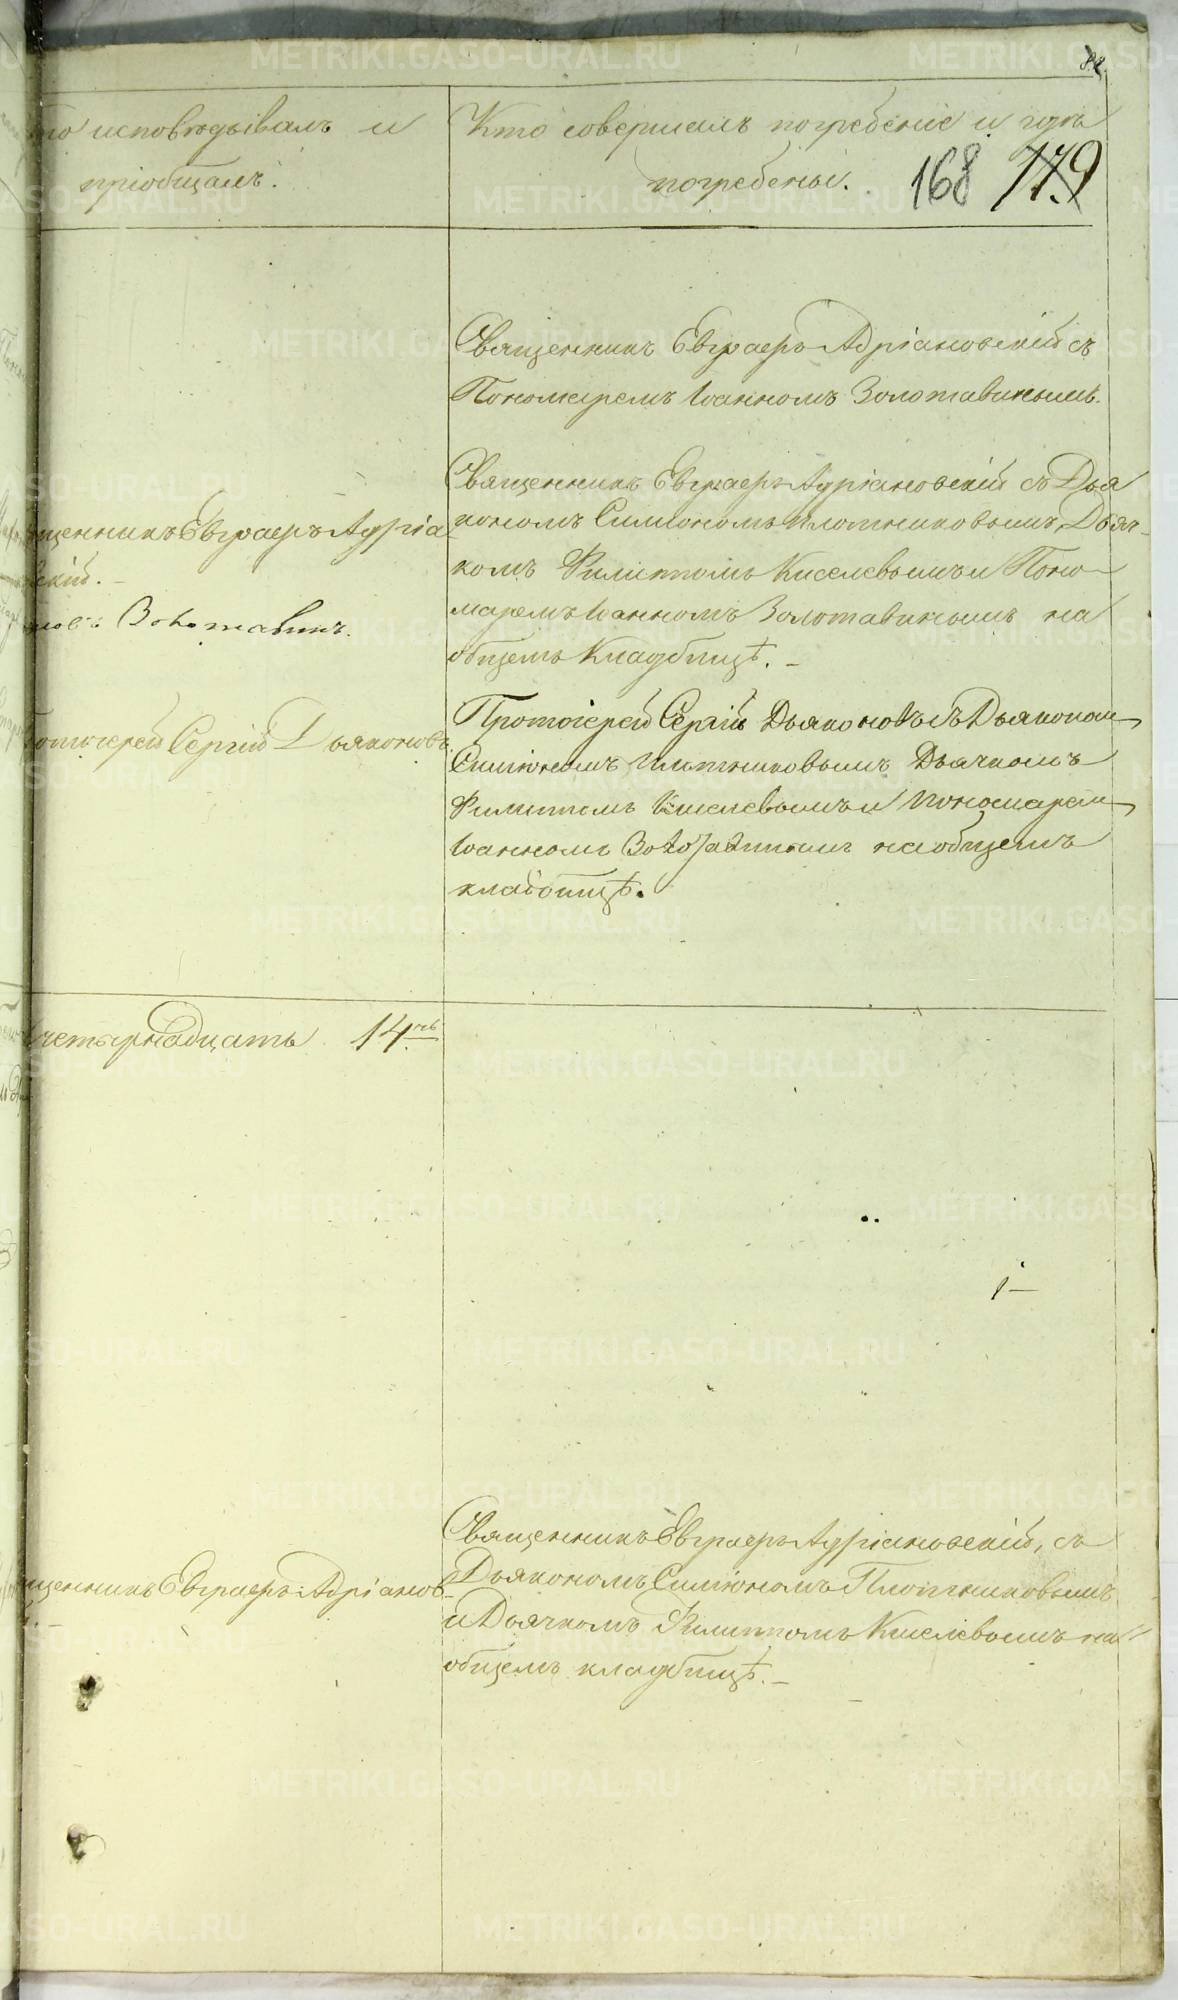 82
то исповѣдывалъ и
пріобщалъ.
Кто совершалъ погребеніе и гдѣ
погребены.
168 179
Священникъ Евграфъ Адріановскій съ
Пономаремъ Іоанномъ Золотавинымъ.
Священникъ Евграфъ Адріановскій съ Дья
кономъ Симіономъ Плотниковымъ, Дьяч-
комъ Филиппомъ Киселевымъ и Поно-
маремъ Іоанномъ Золотавинымъ на
общемъ Кладбищѣ. –
щенникъ Евграфъ Адріа
вскій. –
Золотавинъ.
отоіерей Сергій Дьяконовъ.
Протоіерей Сергій Дьяконовъ съ Дьякономъ
Симіономъ Плотниковымъ Дьячкомъ
Филиппомъ Киселевымъ и Пономаремъ
Іоанномъ Золотавинымъ на общемъ
кладбищѣ.
четырнадцать 14.
щенникъ Евграфъ Адріанов-
Священникъ Евграфъ Адріановскій, съ
Дьякономъ Симіономъ Плотниковымъ
и Дьячкомъ Филиппомъ Киселевымъ на
общемъ кладбищѣ. –
METRIKI.GASO-URAL.RU